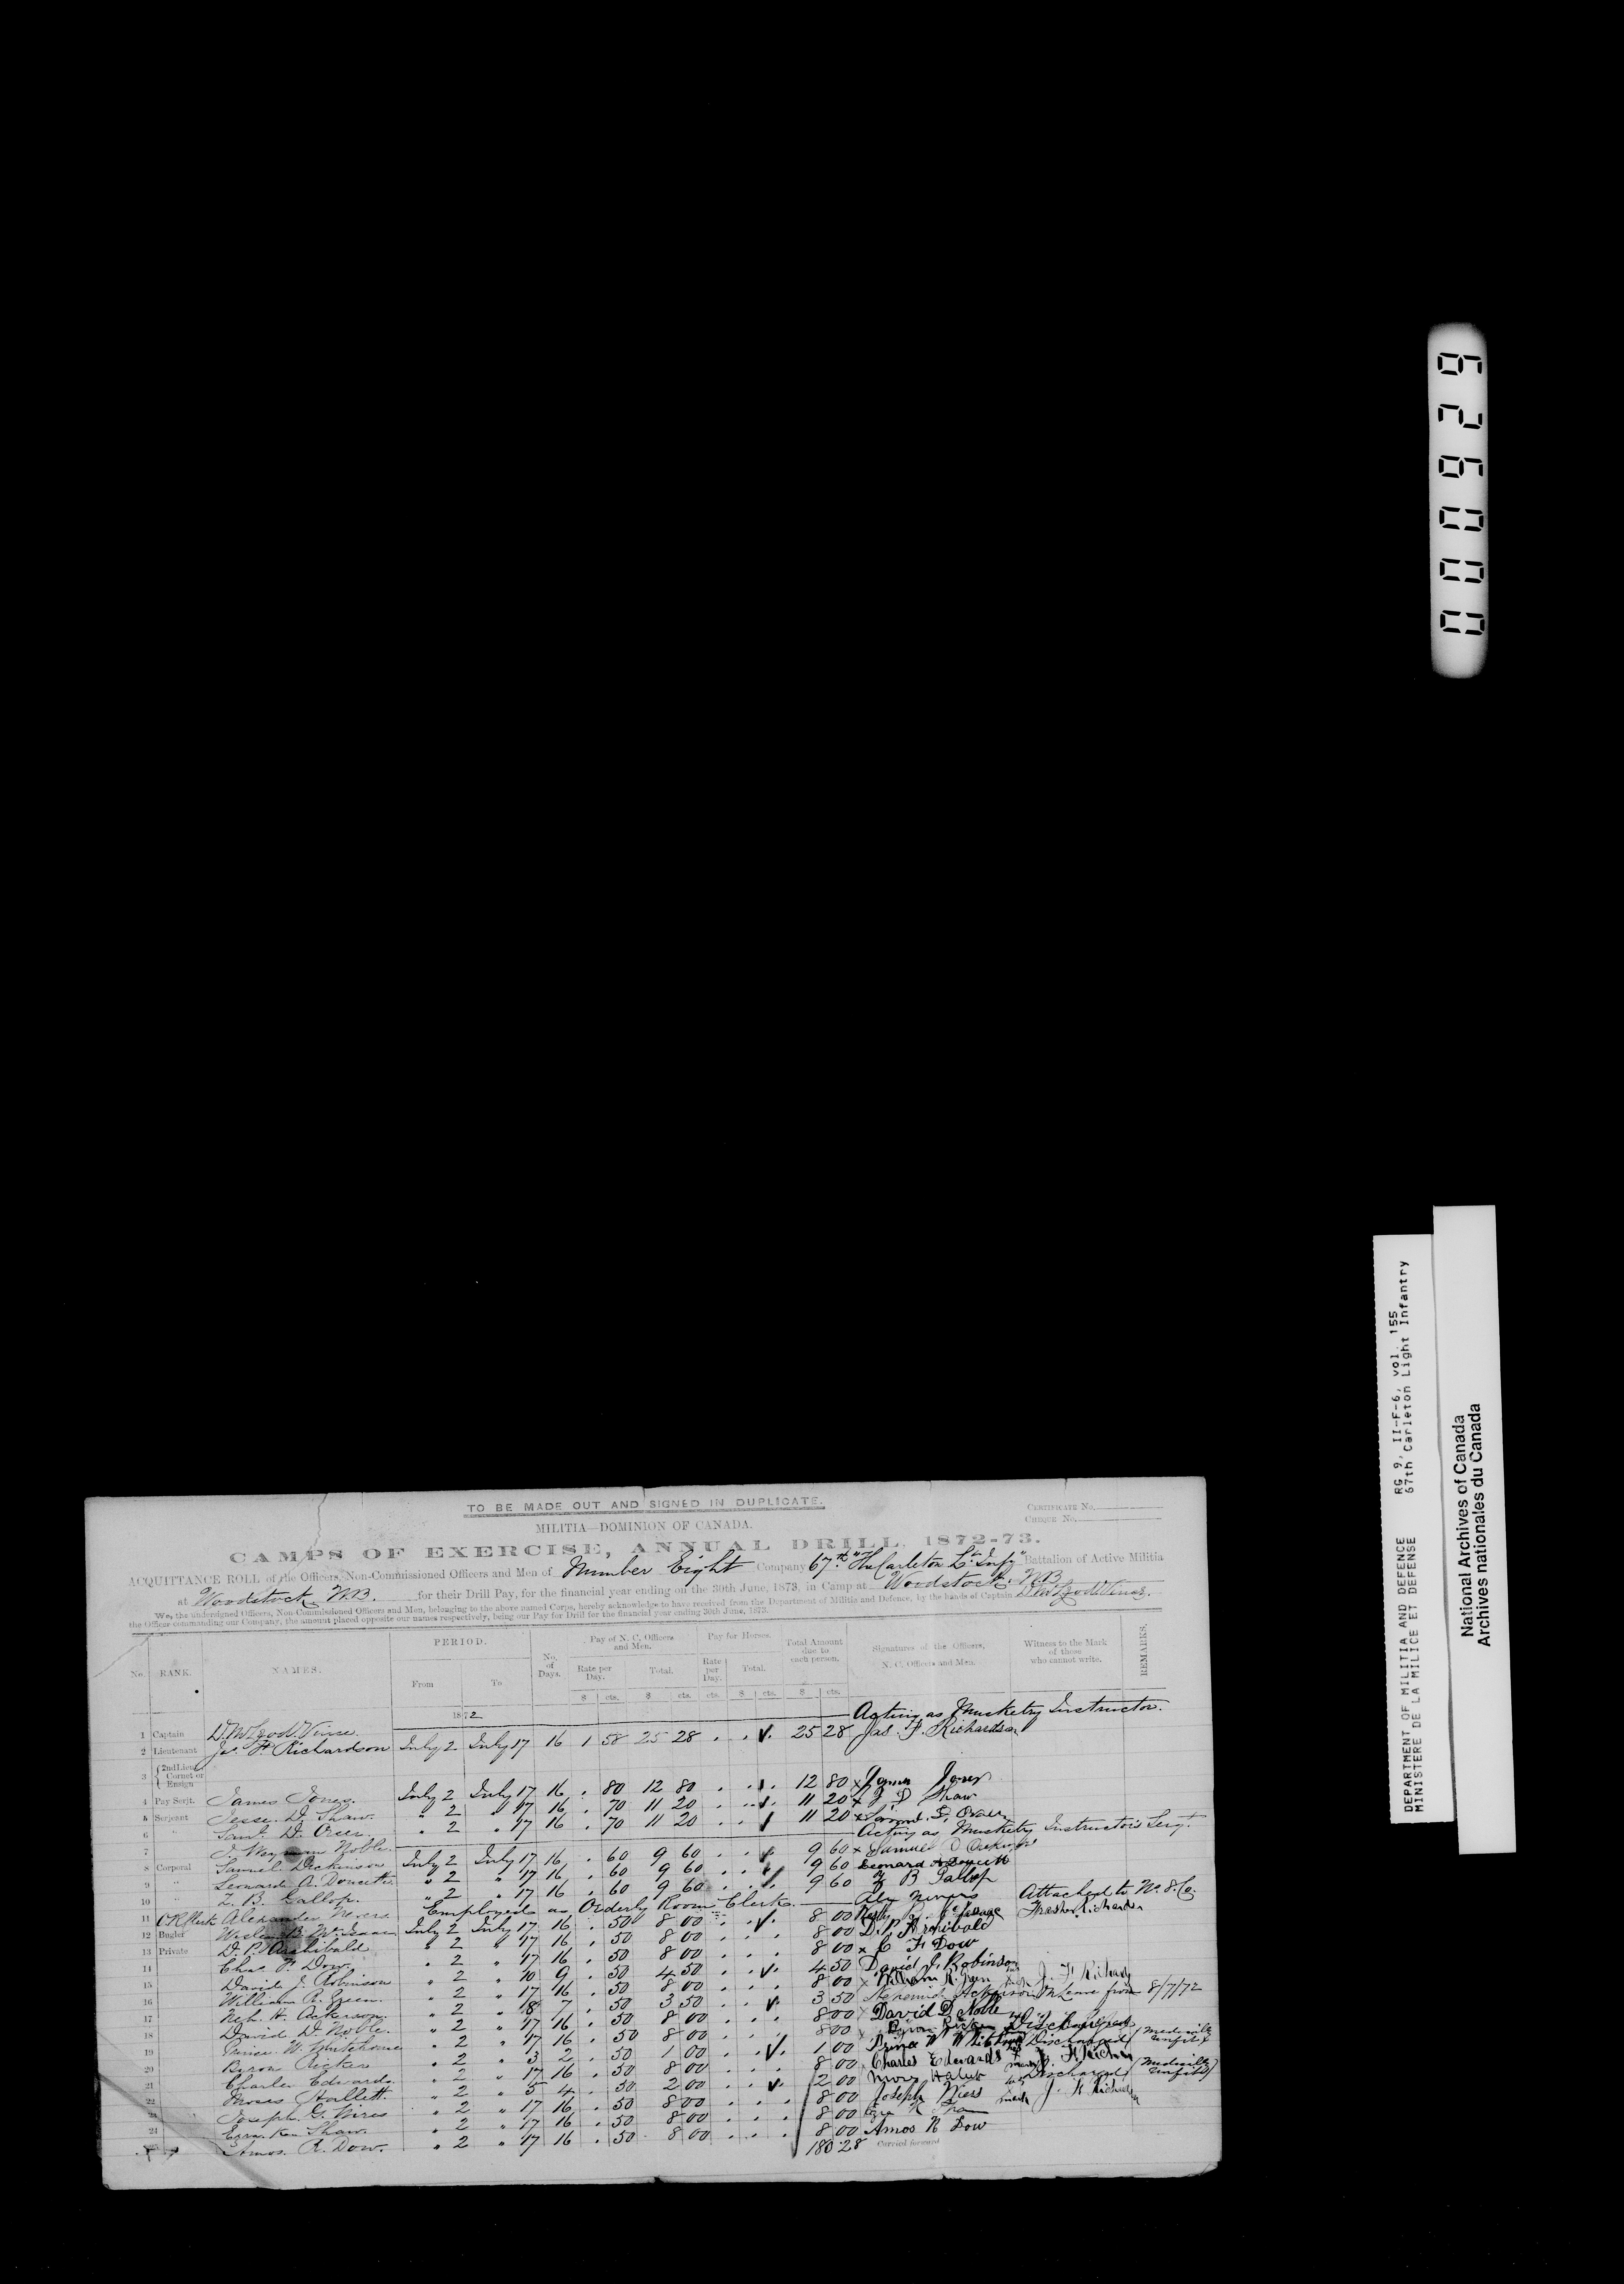 TO BE MADE OUT AND SIGNED IN DUPLICATE.
CERTIFICATE No.
CHEQUE No.
MILITIA—DOMINION OF CANADA.
CAMPS OF EXERCISE, ANNUAL DRILL, 1872-73.
ACQUITTANCE ROLL of the Officers, Non-Commissioned Officers and Men of Number Eight Company 67th "The Carleton Lt. Infy" Battalion of Active Militia
at Woodstock N.B. for their Drill Pay, for the financial year ending on the 30th June, 1873, in Camp at Woodstock, N.B.
We, the undersigned Officers, Non-Commissioned Officers and Men, belonging to the above named Corps, hereby acknowledge to have received from the Department of Militia and Defence, by the hands of Captain
the Officer commanding our Company, the amount placed opposite our names respectively, being our Pay for Drill for the financial year ending 30th June, 1873.
No. RANK. NAMES. PERIOD. From To No. of Days. Pay of N. C. Officers and Men. Rate per Day. Total. Pay for Horses. Rate per Day. Total. Total Amount due to each person. Signatures of the Officers, N. C. Officers and Men. Witness to the Mark of those who cannot write. REMARKS.
$ cts. $ cts. cts. $ cts. $ cts.
1872
1 Captain Vince Acting as Musketry Instructor.
2 Lieutenant Jas. F. Richardson July 2 July 17 16 1 58 25 28 25 28 Jas. F. Richardson
3 2nd Lieut Cornet or Ensign
4 Pay Serjt. James Jones. July 2 July 17 16 . 80 12 80 12 80 x James Jones
5 Serjeant Jesse D. Shaw. " 2 " 17 16 . 70 11 20 11 20 x J D Shaw
6 " Saml. D. Orser. " 2 " 17 16 . 70 11 20 11 20 x
7 J. Wayman Noble. Acting as Musketry Instructors Sergt.
8 Corporal Samuel Dickinson July 2 July 17 16 . 60 9 60 9 60 x Samuel
9 " Leonard A. Doucette " 2 " 17 16 . 60 9 60 9 60 Leonard A
10 Z. B. Gallop. " 2 " 17 16 . 60 9 60 9 60 Z B Gallop
11 O R Clerk Alexander Nevers Employed as Orderly Room Clerk. Alex Nevers Attached to No. 8. Co.
12 Bugler July 2 July 17 16 . 50 8 00 8 00
13 Private D. P. Archibald " 2 " 17 16 . 50 8 00 8 00 D. P. Archibald
14 Chas. F. Dow. " 2 " 17 16 . 50 8 00 8 00 x C F Dow
15 David J. Robinson " 2 " 10 9 . 50 4 50 4 50 David J. Robinson
16 William R. Green. " 2 " 17 16 . 50 8 00 8 00 x William R.
17 Neh. H. Ackerson. " 2 " 18 7 . 50 3 50 3 50 On Leave from 8/7/72
18 David D. Noble. " 2 " 17 16 . 50 8 00 8 00 x David D Noble
19 " 2 " 17 16 . 50 8 00 8 00 x
20 Byron Ricker " 2 " 3 2 . 50 1 00 1 00 Discharged (Medically unfit)
21 Charles Edwards. " 2 " 17 16 . 50 8 00 8 00 Charles Edwards
22 Moses Hallett. " 2 " 5 4 . 50 2 00 2 00 Discharged (Medically unfit)
23 Joseph G. " 2 " 17 16 . 50 8 00 8 00 Joseph
24 Ezra Ken Shaw. " 2 " 17 16 . 50 8 00 8 00 Ezra K
Amos. R. Dow. " 2 " 17 16 . 50 8 00 8 00 Amos R Dow
180 28 Carried forward
000929
DEPARTMENT OF MILITIA AND DEFENSE RG 9, II-F-6, vol. 155
MINISTERE DE LA MILICE ET DEFENSE 67th Carleton Light Infantry
National Archives of Canada
Archives nationales du Canada